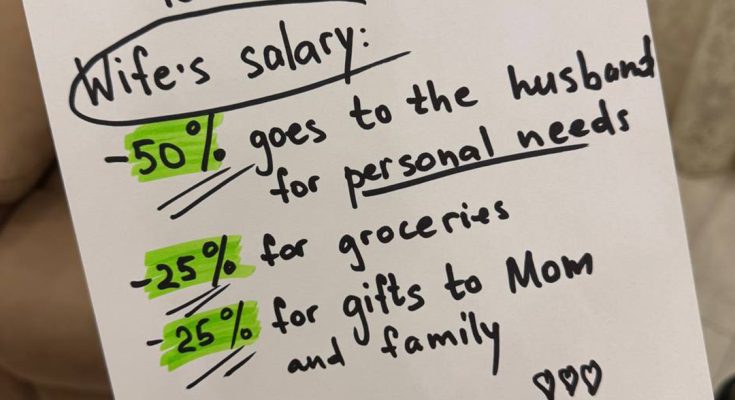 Wife's salary:
-50% goes to the husband
for personal needs
-25% for groceries
-25% for gifts to Mom
and family